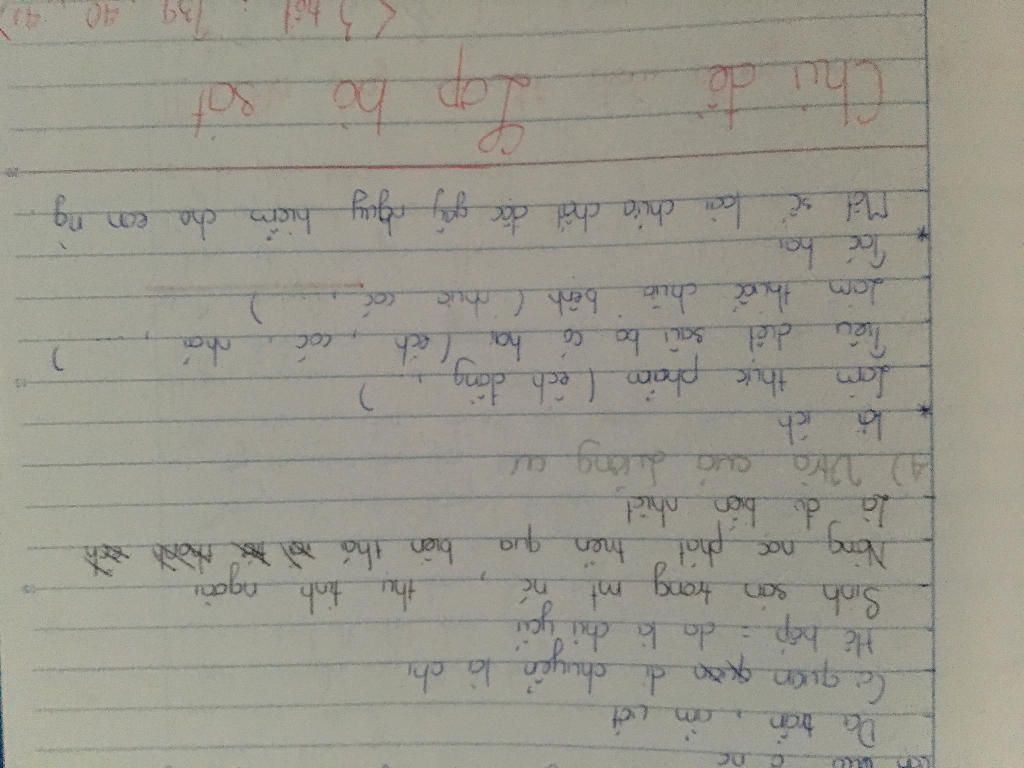 Da trần, ẩm ướt
Cơ quan di chuyển là chi
Hô hấp = da là chủ yếu
Sinh sản trong mt nc, thụ tinh ngoài
Nòng nọc phát triển qua biến thái
Là đv biến nhiệt
4) Vtrò của lưỡng cư
* lợi ích
Làm thực phẩm (ếch đồng, ...)
Tiêu diệt sâu bọ có hại (ếch, cóc, nhái, ...)
Làm thuốc chữa bệnh (nhực cóc, ...)
* Tác hại
Một số loài chứa chất độc gây nguy hiểm cho con ng
Chủ đề Lớp bò sát
( 3 tiết : 39 40 41)